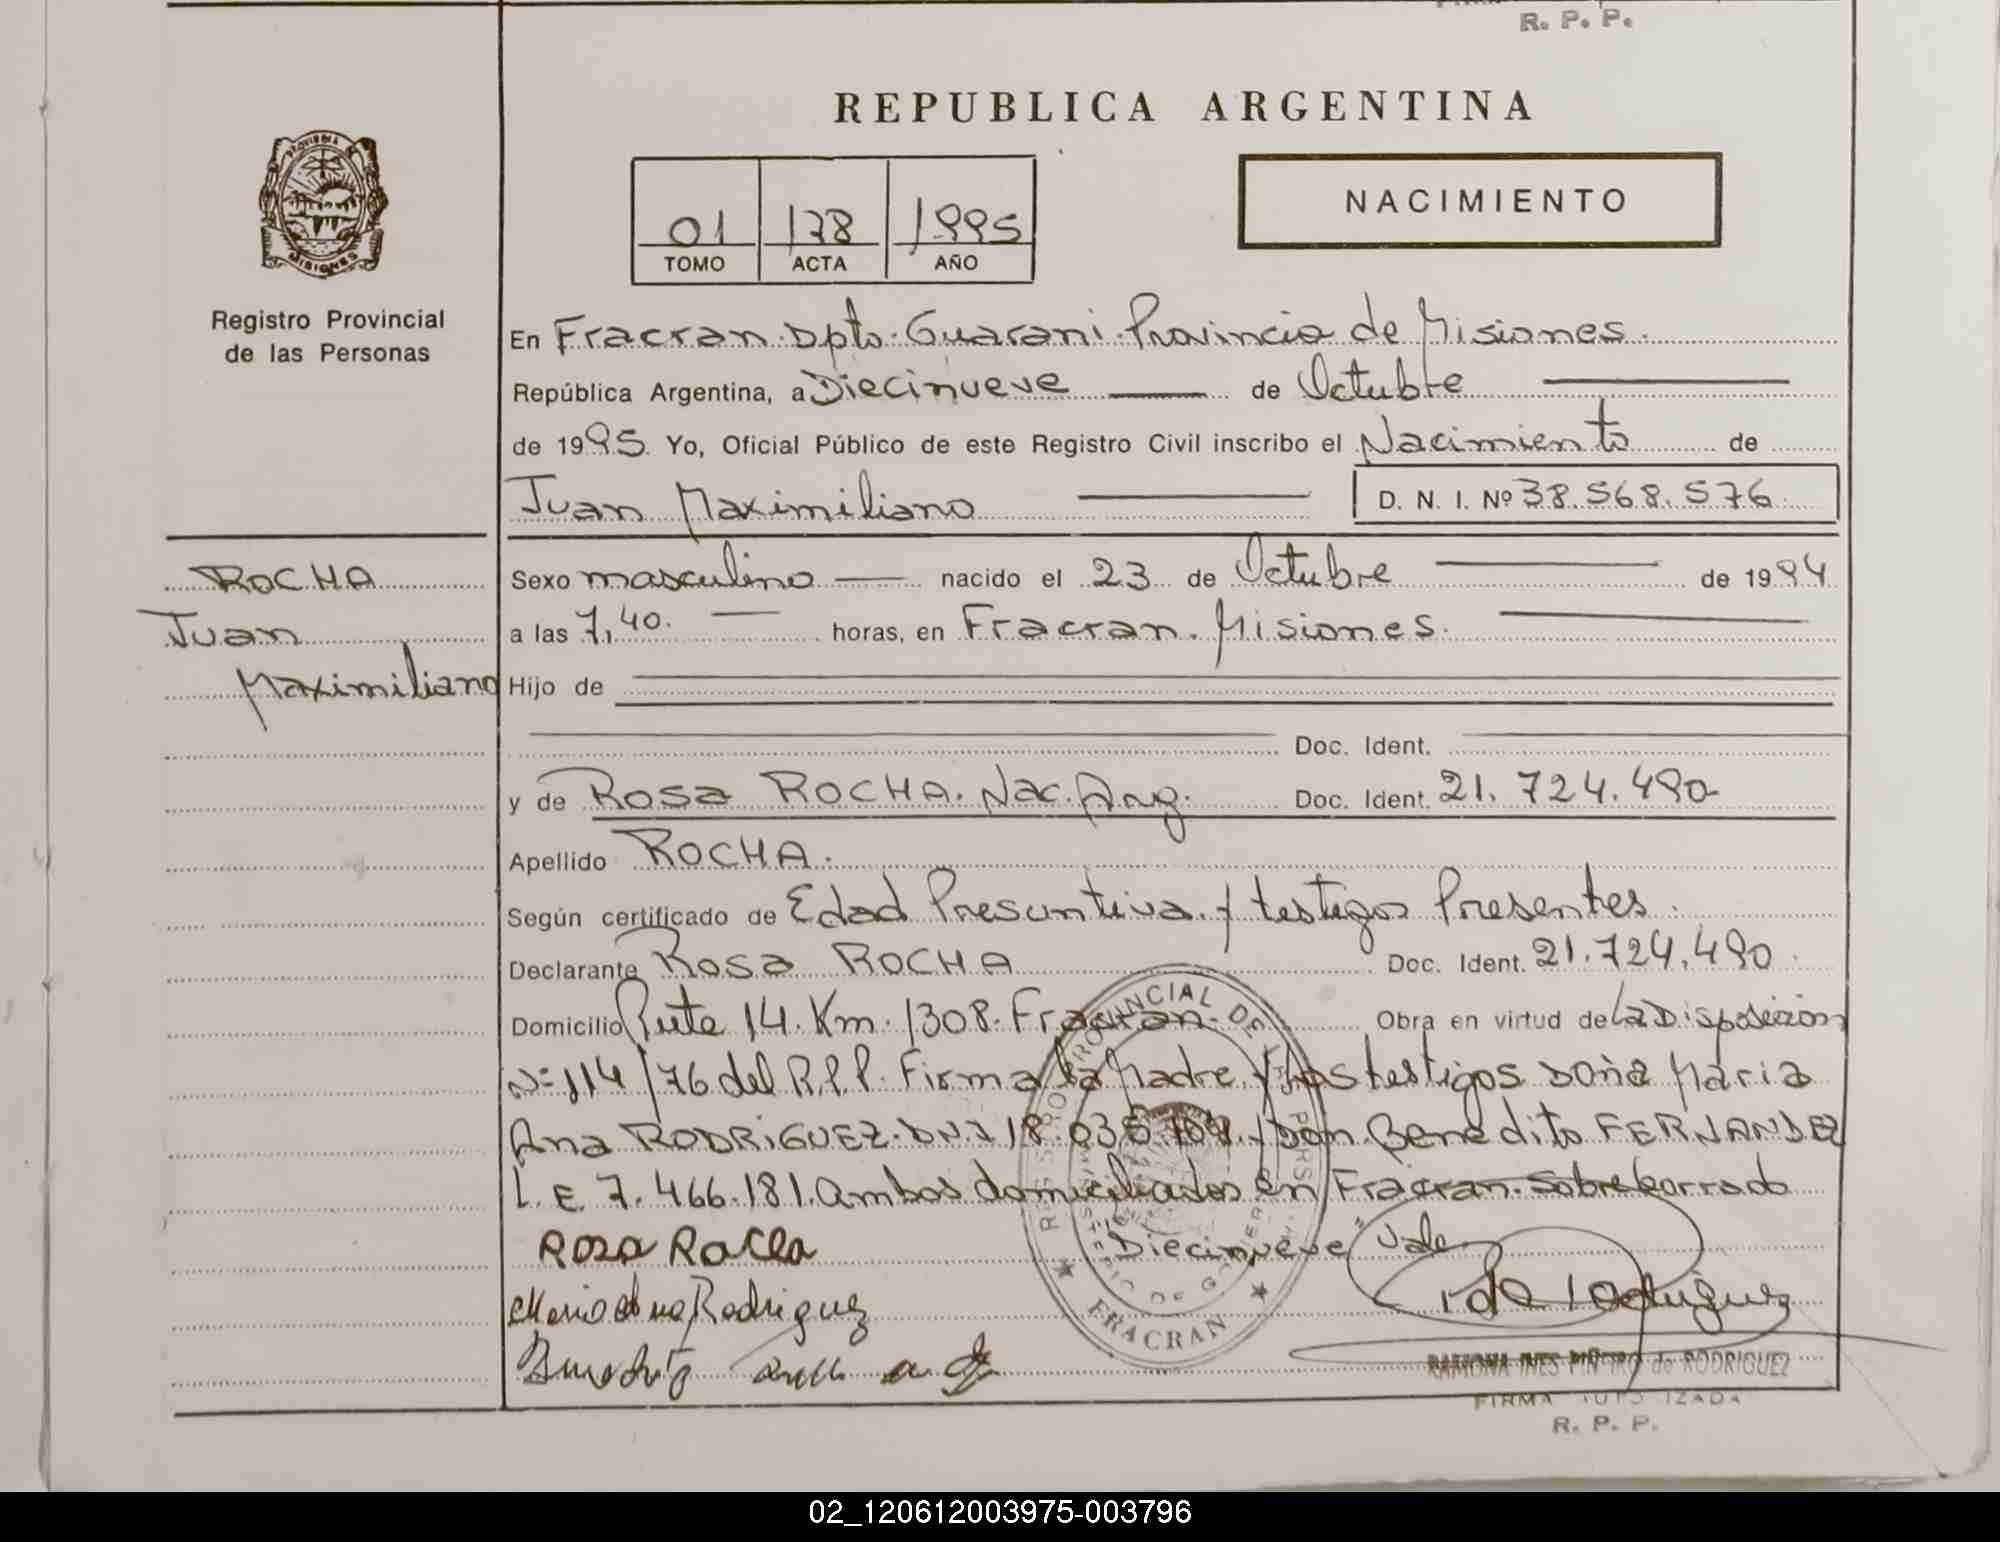 R. P. P.
REPUBLICA ARGENTINA
01 178 1995
TOMO ACTA AÑO
NACIMIENTO
PROVINCIA
MISIONES
Registro Provincial
de las Personas
En Fracran. Dpto. Guarani. Provincia de Misiones.
República Argentina, a Diecinueve de Octubre
de 1995. Yo, Oficial Público de este Registro Civil inscribo el Nacimiento de
Juan Maximiliano D. N. I. Nº 38.568.576.
ROCHA
Juan
Maximiliano
Sexo masculino nacido el 23 de Octubre de 1994
a las 7,40. horas, en Fracran. Misiones.
Hijo de
Doc. Ident.
y de Rosa ROCHA. Nac. Arg. Doc. Ident. 21.724.490
Apellido ROCHA.
Según certificado de Edad Presuntiva y testigos Presentes.
Declarante Rosa ROCHA Doc. Ident. 21.724.490.
Domicilio Ruta 14. Km. 1308. Fracran. Obra en virtud de La Disposicion
Nº 114/76 del R.P.P. Firma la Madre y los testigos Doña Maria
Ana RODRIGUEZ. DNI 18. y Don Benedito FERNANDEZ
L.E. 7.466.181. Ambos domiciliados en Fracran. Sobreborrado
"Diecinueve" Vale
Rosa Rocha
Maria Ana Rodriguez
Benedito
Rodriguez
REGISTRO PROVINCIAL DE LAS PERSONAS
MINISTERIO DE GOBIERNO
★ FRACRAN ★
RAMONA INES PIÑEIRO de RODRIGUEZ
FIRMA AUTORIZADA
R. P. P.
02_120612003975-003796